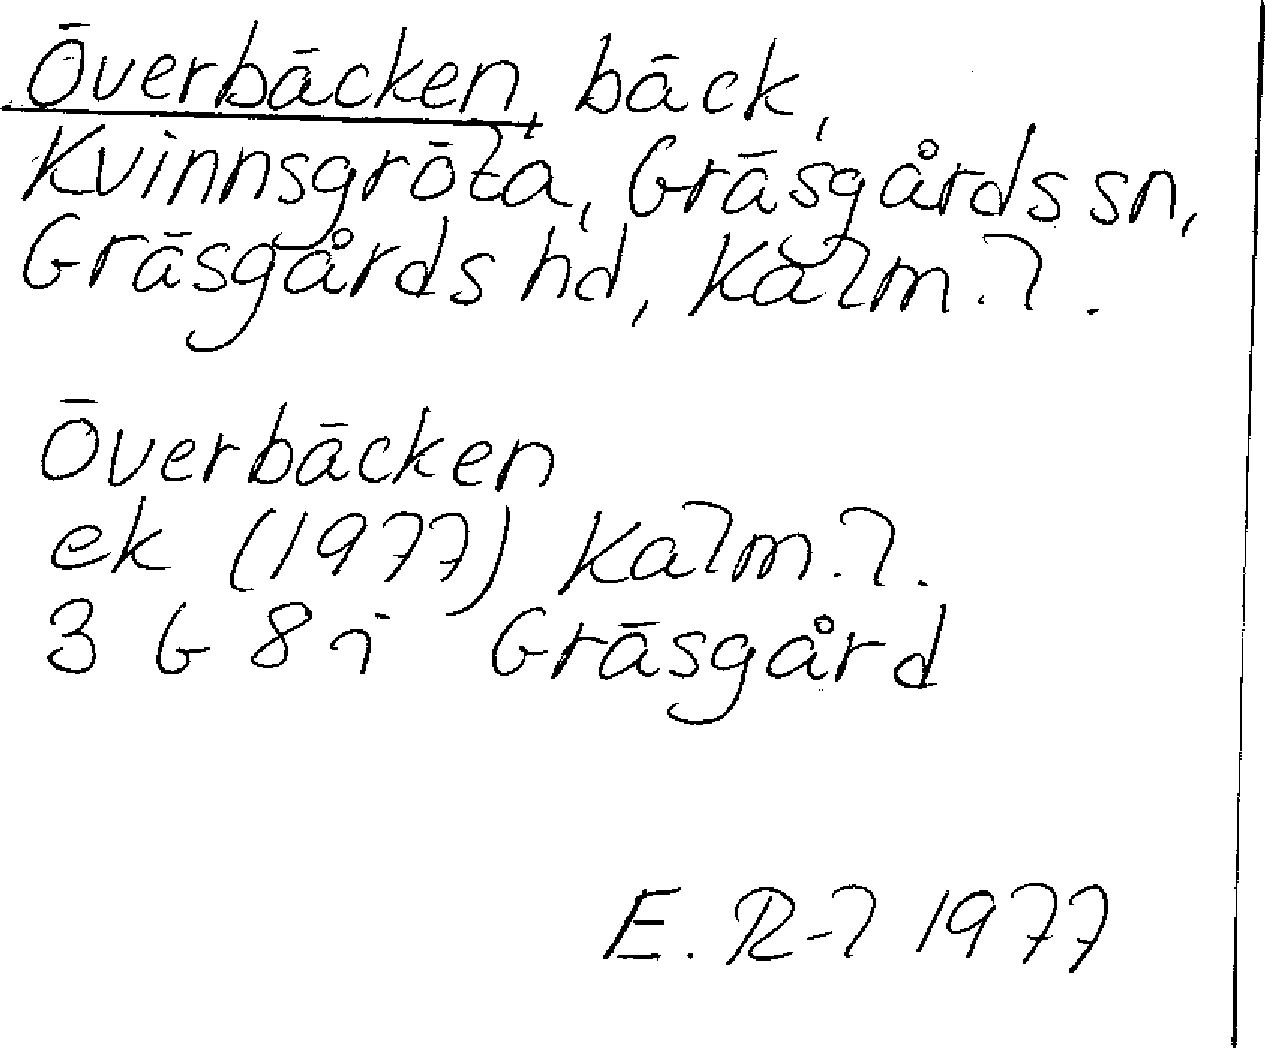 Överbäcken, bäck,
Kvinnsgröta, Gräsgårds sn,
Gräsgårds hd, Kalm. l.
Överbäcken
ek (1977) Kalm. l.
3 G 8 i Gräsgård
E. R-l 1977